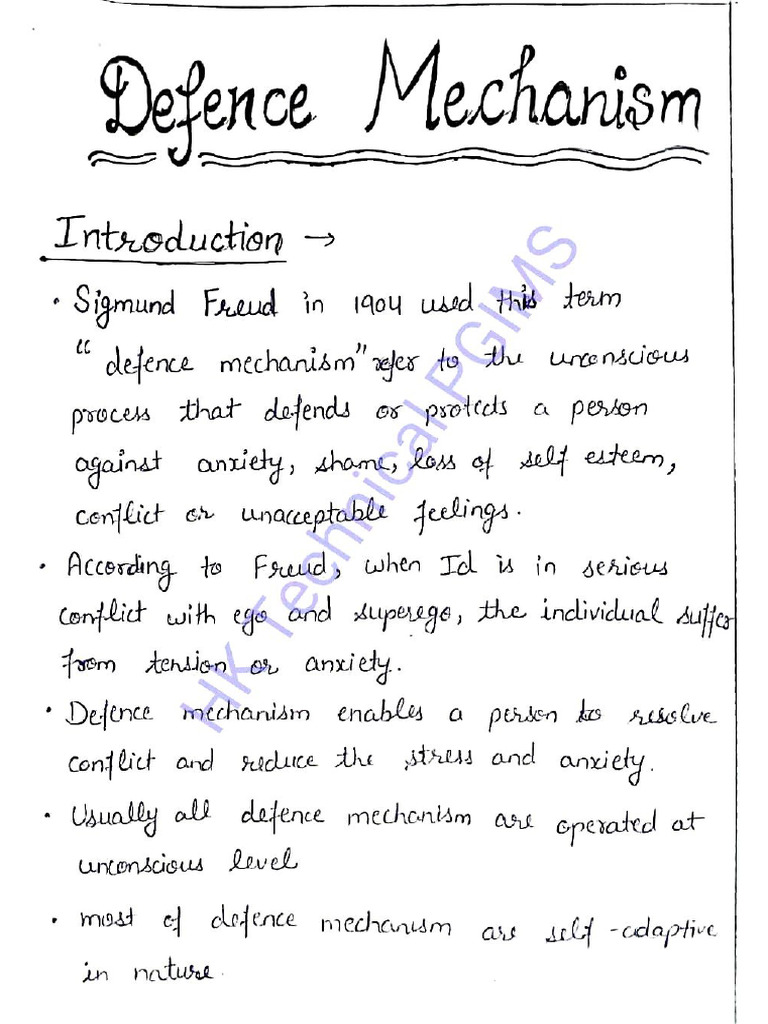 Defence Mechanism
Introduction →
• Sigmund Freud in 1904 used this term
"defence mechanism" refer to the unconscious
process that defends or protects a person
against anxiety, shame, loss of self esteem,
conflict or unacceptable feelings.
• According to Freud, when Id is in serious
conflict with ego and superego, the individual suffer
from tension or anxiety.
• Defence mechanism enables a person to resolve
conflict and reduce the stress and anxiety.
• Usually all defence mechanism are operated at
unconscious level
• most of defence mechanism are self-adaptive
in nature.
HK Technical PGIMS